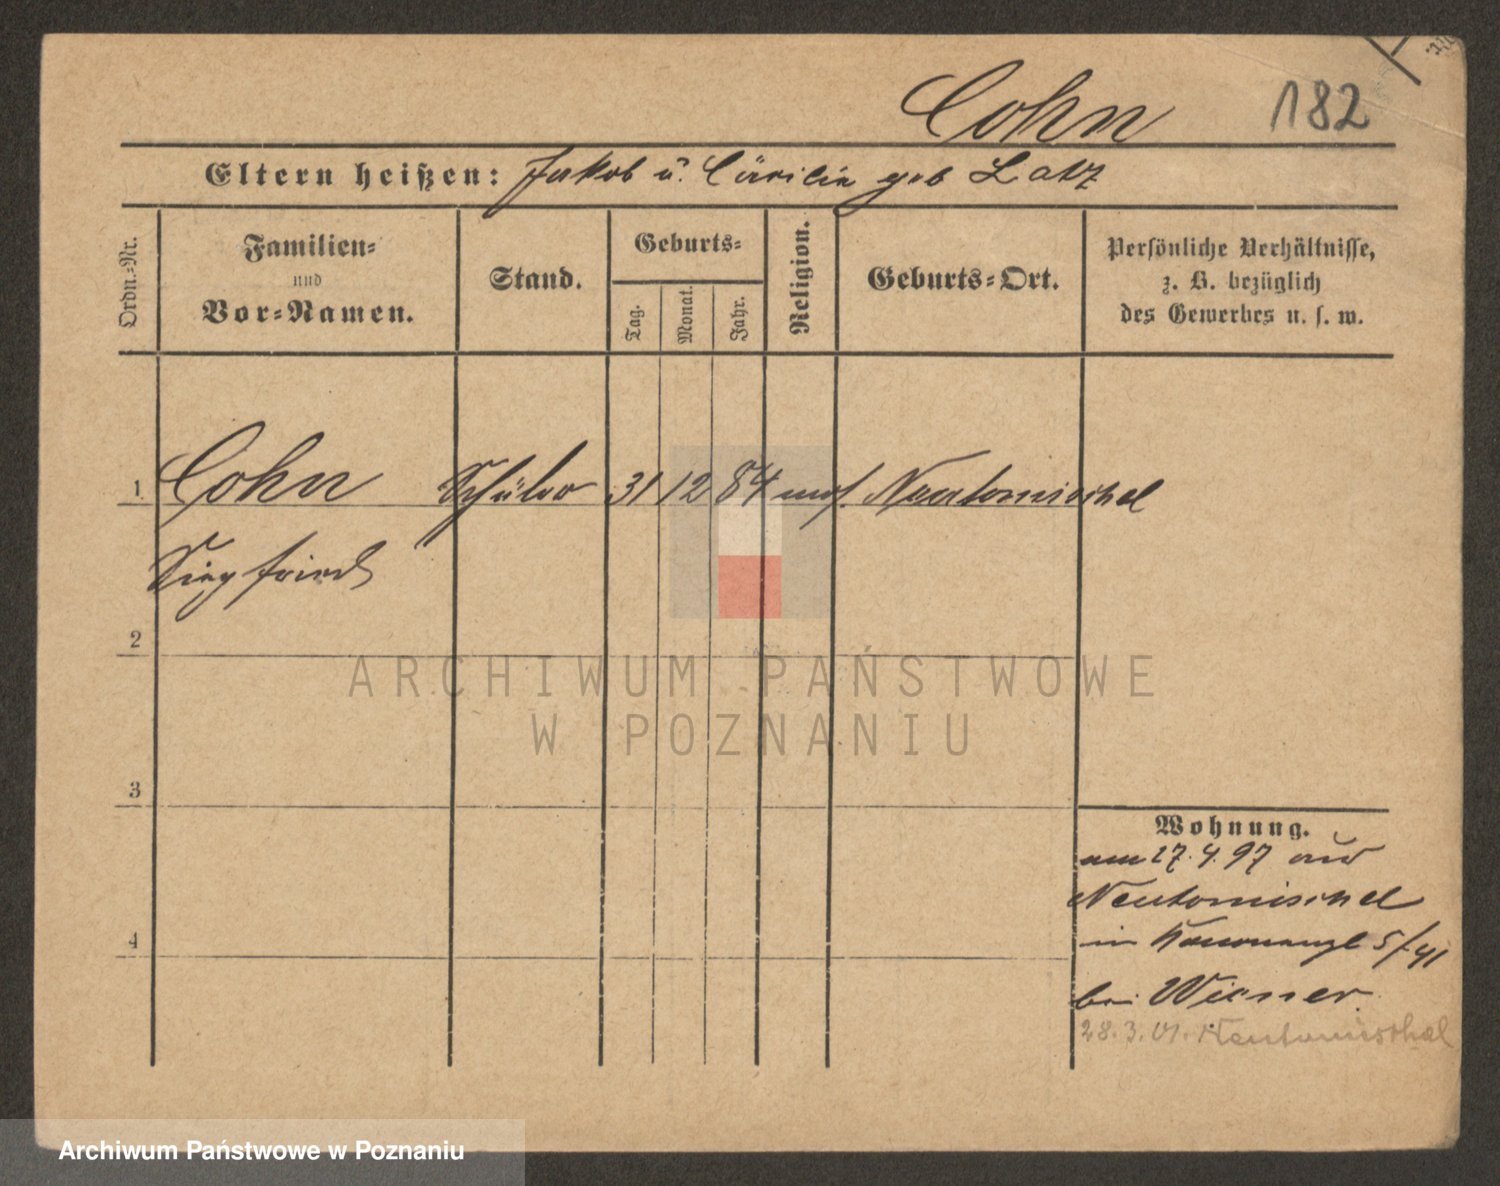 Cohn 182
Eltern heißen: Jakob u. Cäcilie geb Latz
Ordn.-Nr.
Familien-
und
Vor-Namen.
Stand.
Geburts-
Tag.
Monat.
Jahr.
Religion.
Geburts-Ort.
Persönliche Verhältnisse,
z. B. bezüglich
des Gewerbes u. s. w.
1 Cohn Schüler 31 12 84 mos. Neutomischel
Siegfried
2
3
4
Wohnung.
am 27.4.97 aus
Neutomischel
in 5/41
bei Wiener
28.3.01. Neutomischel
ARCHIWUM PAŃSTWOWE
W POZNANIU
Archiwum Państwowe w Poznaniu